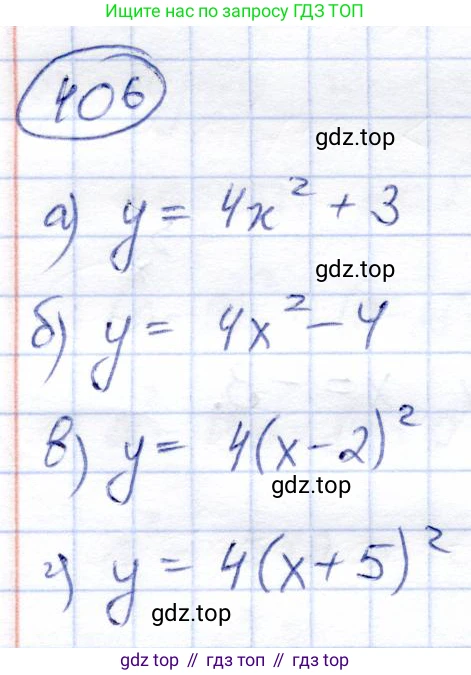 Ищите нас по запросу ГДЗ ТОП
406
gdz.top
а) y = 4x² + 3
gdz.top
б) y = 4x² - 4
в) y = 4(x-2)²
gdz.top
г) y = 4(x+5)²
gdz.top
gdz.top // гдз топ // gdz.top